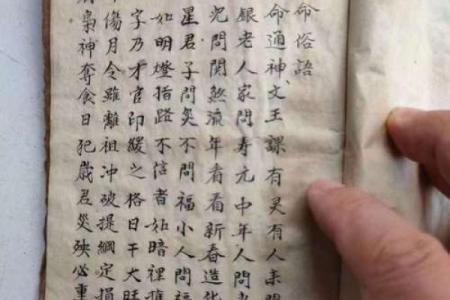 命俗語
命通神文王課有灵有人來問
銀老人家問寿元中年人問
児問関煞流年看看新春造化
星君子問災不問福小人問福
如明燈指路不信者如暗裡
字乃才官印綬之格日干大旺
傷月令雖離祖冲破提綱定損
梟神奪食日犯歳君災殃必重